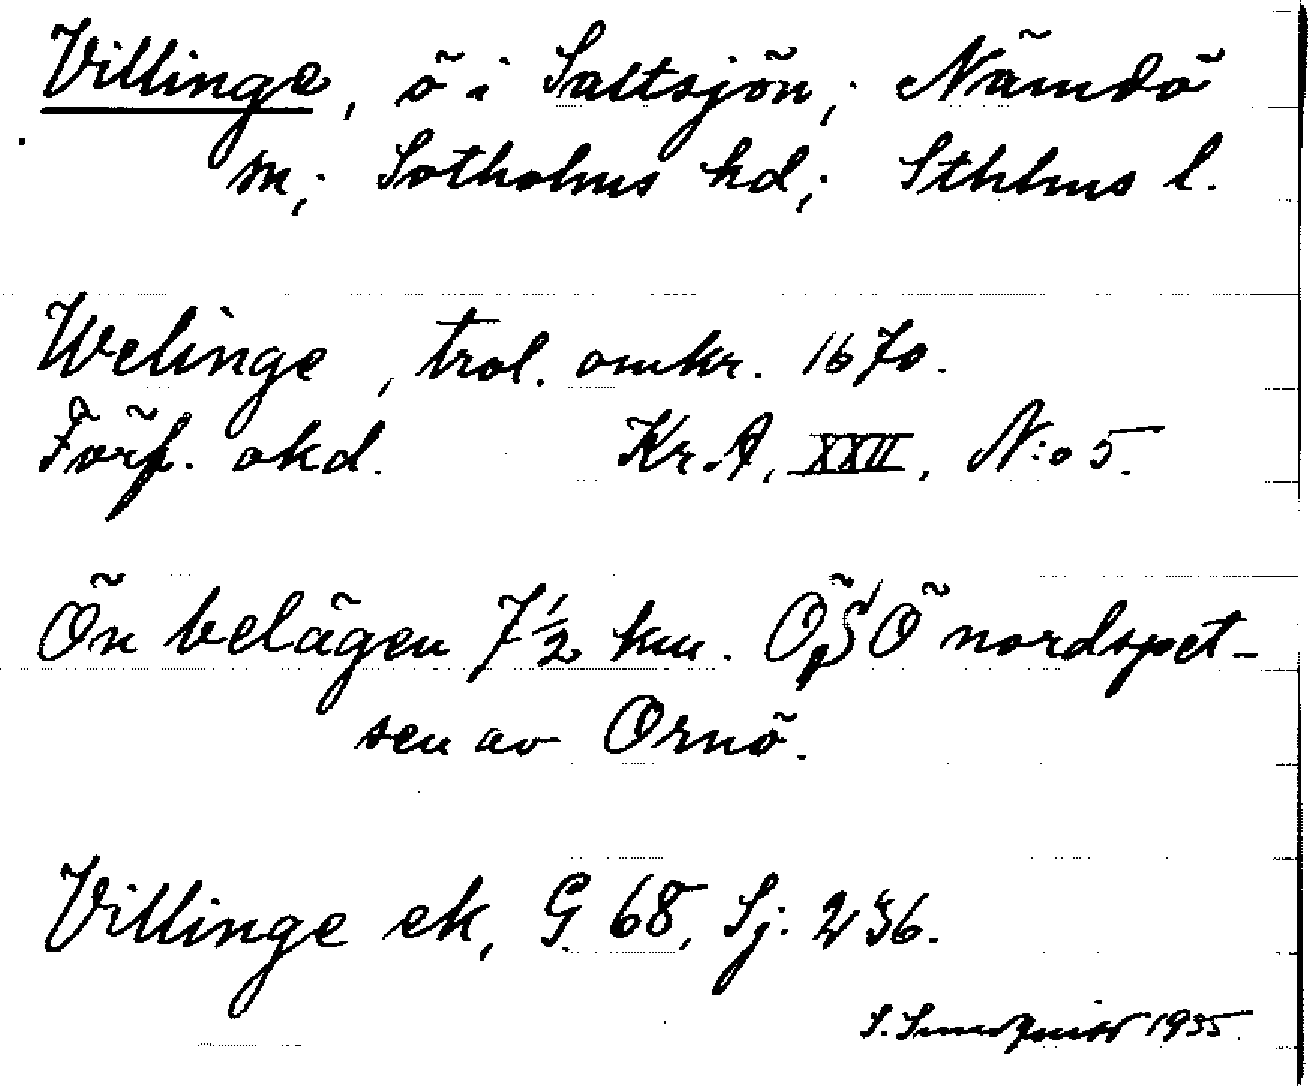 Villinge, ö i Saltsjön; Nämdö
sn; Sotholms hd; Sthlms l.
Welinge, trol. omkr. 1670.
Förf. okd. Kr.A, XXII, N:o 5.
Ön belägen 7½ km. ÖSÖ nordspet-
sen av Ornö.
Villinge ek, G 68, Sj. 236.
S. 1935.